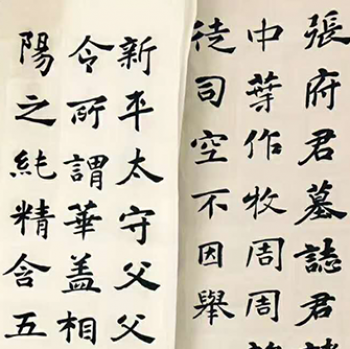 張府君墓誌君
中葉作牧周周
徒司空不因舉
新平太守父父
令所謂華蓋相
陽之純精含五